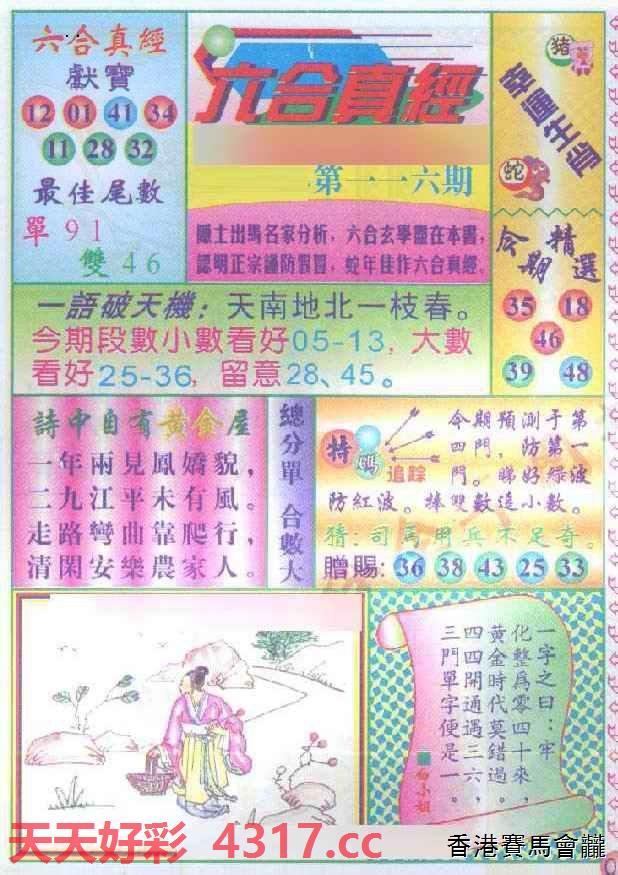 六合真經
獻寶
12 01 41 34
11 28 32
最佳尾數
單 9 1
雙 4 6
六合真經
第一一六期
隱士出馬名家分析，六合玄學盡在本書，
認明正宗謹防假冒，蛇年佳作六合真經。
猪
蛇
今期精選
35 18
46
39 48
一語破天機：天南地北一枝春。
今期段數小數看好05-13，大數
看好25-36，留意28、45。
詩中自有黃金屋
一年兩見鳳嬌貌，
二九江平未有風。
走路彎曲靠爬行，
清閑安樂農家人。
總分單 合數大
特碼
追踪
今期預測于第
四門，防第一
門。睇好綠波
防紅波。捧雙數這小數。
猜：司馬用兵不足奇。
贈賜：36 38 43 25 33
一字之曰：牢
化整爲零四十來，
黃金時代莫錯過。
四四開通遇三六，
三門單字便是一。
白小姐
天天好彩 4317.cc
香港賽馬會